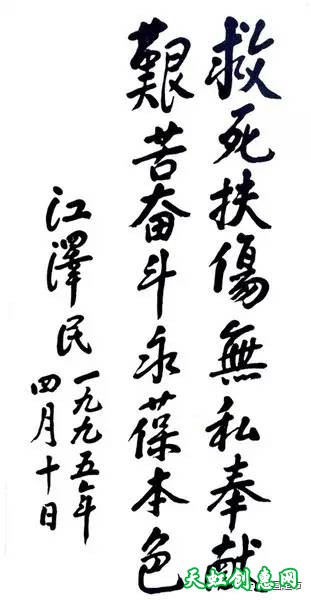 救死扶傷無私奉献
艱苦奋斗永葆本色
江澤民
一九九五年
四月十日
天虹创惠网